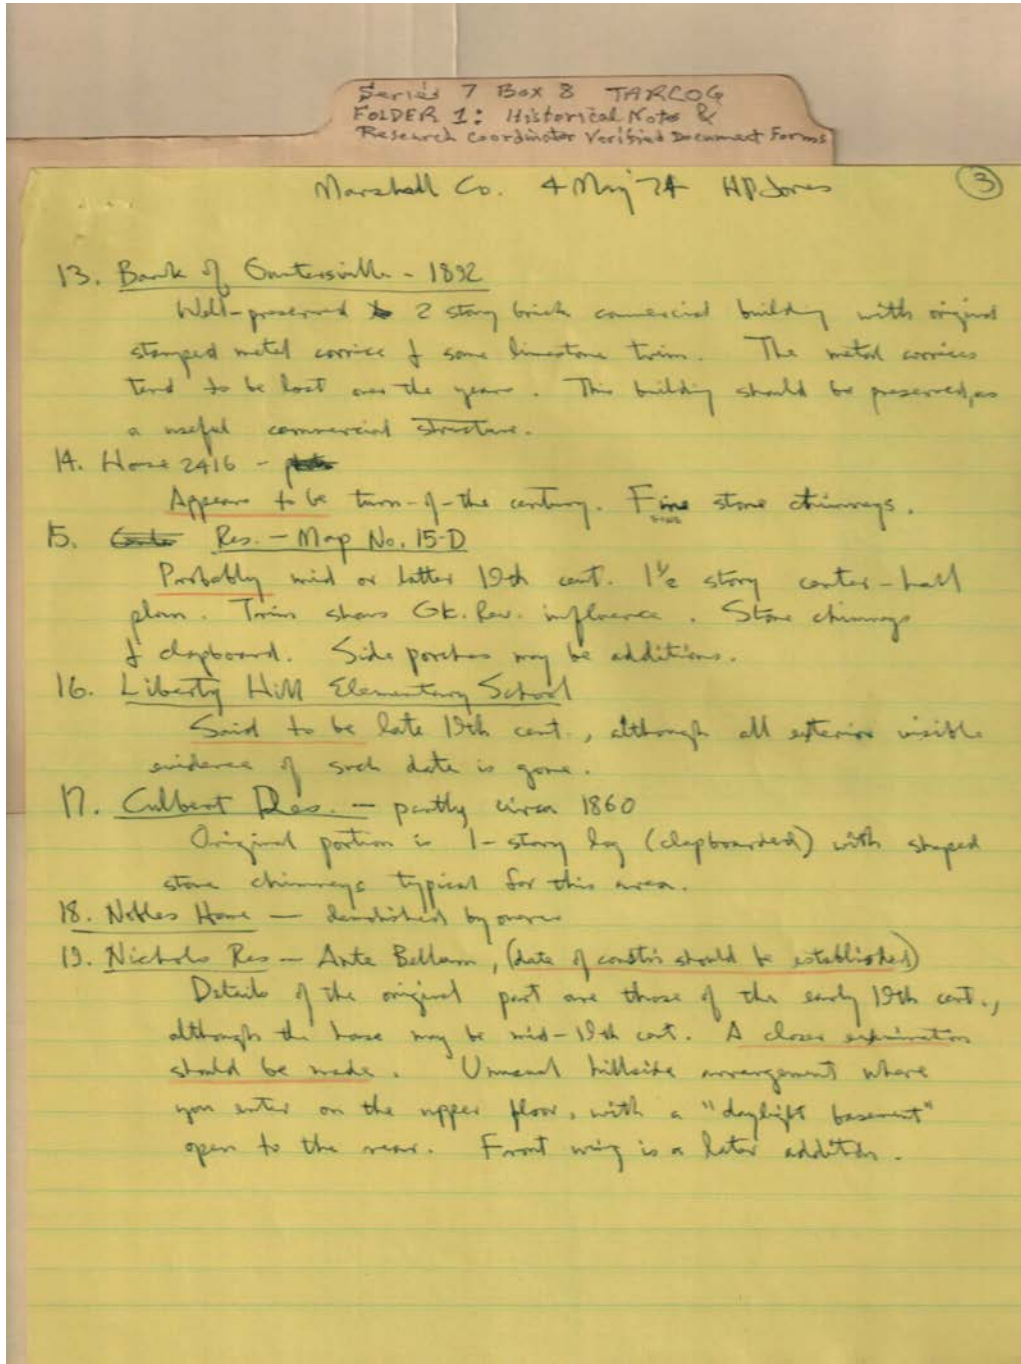 Series 7 Box 8 TARCOG
FOLDER 1: Historical Note &
Research Coordinator Verified Document Forms
Marshall Co. 4 May 74 HPJones
3
13. Bank of Guntersville - 1892
Well-preserved 2 story brick commercial building with original
stamped metal cornice & some limestone trim. The metal cornices
tend to be lost over the years. This building should be preserved, as
a useful commercial structure.
14. House 2416 -
Appears to be turn-of-the century. Fine stone chimneys.
15. Res. - Map No. 15-D
Probably mid or latter 19th cent. 1 1/2 story center-hall
plan. Trim shows Gk. Rev. influence. Stone chimneys
& clapboard. Side porches may be additions.
16. Liberty Hill Elementary School
Said to be late 19th cent., although all exterior visible
evidence of such date is gone.
17. Culbert Res. - partly circa 1860
Original portion is 1-story log (clapboarded) with shaped
stone chimneys typical for this area.
18. Nobles Home - demolished by owner
19. Nichols Res - Ante Bellum, (date of constr. should be established)
Details of the original part are those of the early 19th cent.,
although the house may be mid-19th cent. A closer examination
should be made. Unusual hillside arrangement where
you enter on the upper floor, with a "daylight basement"
open to the rear. Front wing is a later addition.